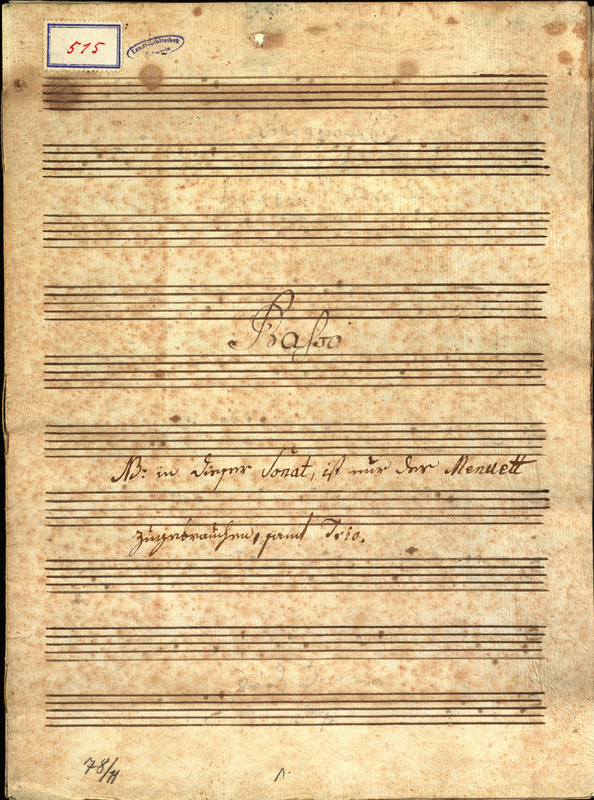 515
Landesbibliothek
Basso
NB: in dieser Sonat, ist nur der Menuett
zugebrauchen, samt Trio.
78/11
1.